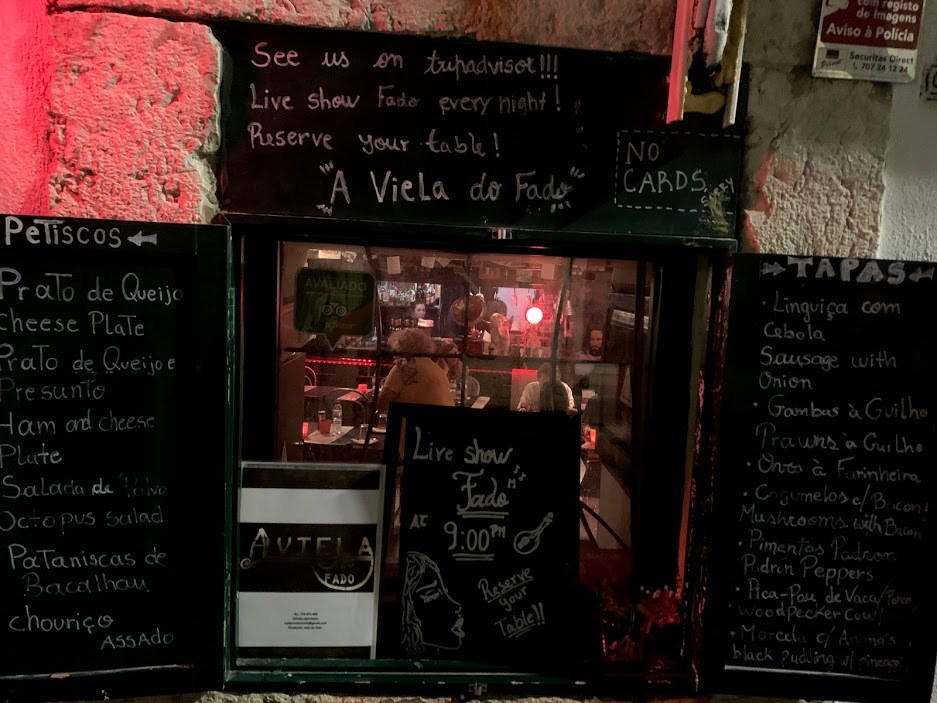 See us on tripadvisor!!!
Live show Fado every night!
Reserve your table!
"A Viela do Fado"
NO
CARDS
SORRY
com registo
de imagens
Aviso à Polícia
Securitas Direct
707 24 12 24
PETISCOS
PRATO de Queijo
Cheese Plate
Prato de Queijo e
Presunto
Ham and cheese
Plate
Salada de Polvo
Octopus salad
PATANISCAS de
Bacalhau
chouriço
ASSADO
AVALIADO
Live show
Fado
AT
9:00 PM
Reserve
your
Table!!
A VIELA
FADO
TAPAS
• Linguiça com
Cebola
Sausage with
Onion
• Gambas à Guilho
Prawns à Guilho
• Ovos à Farinheira
• Cogumelos c/Bacon
Mushrooms with Bacon
• Pimentos Padron
Padron Peppers
• Pica-Pau de Vaca/Porco
Woodpecker Cow/
• Morcela c/
black pudding w/